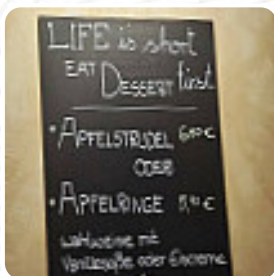 LIFE is short
EAT DESSERT first
• APFELSTRUDEL 6,90 €
ODER
• APFELRINGE 5,90 €
wahlweise mit
Vanillesoße oder Eiscreme